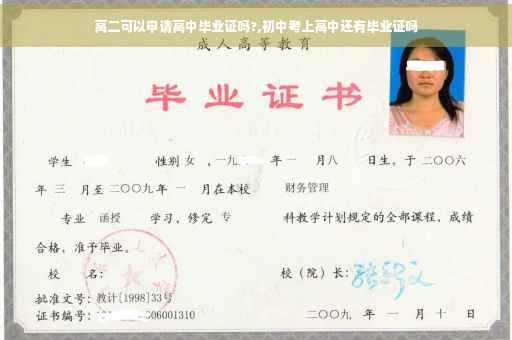 高二可以申请高中毕业证吗?,初中考上高中还有毕业证吗
成人高等教育
毕业证书
学生 性别 女 ,一九 年 一 月八 日生，于 二〇〇六
年 三 月至 二〇〇九 年 一 月在本校 财务管理
专业 函授 学习，修完 专 科教学计划规定的全部课程，成绩
合格，准予毕业。
校 名： 校（院）长：
批准文号：教计[1998]33号
证书编号： 06001310 二〇〇九 年 一 月 十 日